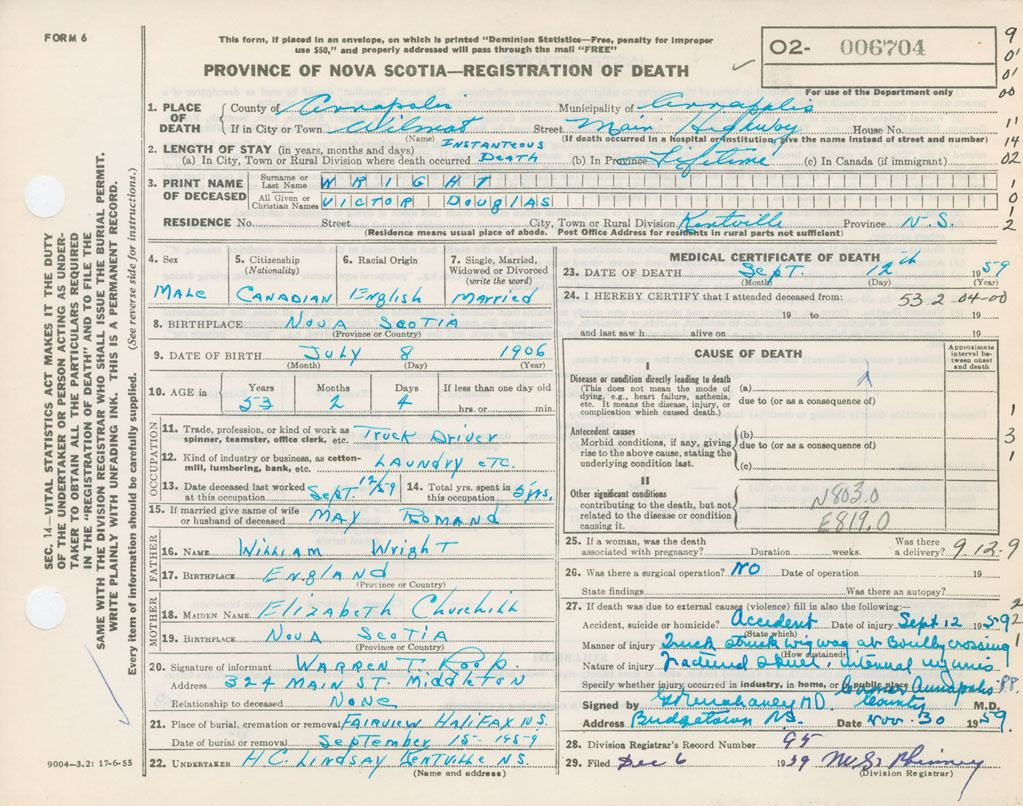 FORM 6
This form, if placed in an envelope, on which is printed "Dominion Statistics—Free, penalty for improper
use $50," and properly addressed will pass through the mail "FREE"
PROVINCE OF NOVA SCOTIA—REGISTRATION OF DEATH
O2- 006704
For use of the Department only
9
01
01
00
11
14
02
1
0
1
2
SEC. 14—VITAL STATISTICS ACT MAKES IT THE DUTY
OF THE UNDERTAKER OR PERSON ACTING AS UNDER-
TAKER TO OBTAIN ALL THE PARTICULARS REQUIRED
IN THE "REGISTRATION OF DEATH" AND TO FILE THE
SAME WITH THE DIVISION REGISTRAR WHO SHALL ISSUE THE BURIAL PERMIT.
WRITE PLAINLY WITH UNFADING INK. THIS IS A PERMANENT RECORD.
Every item of information should be carefully supplied. (See reverse side for instructions.)
1. PLACE OF DEATH County of Annapolis Municipality of Annapolis
If in City or Town Wilmot Street Main Highway House No.
(Name) (If death occurred in a hospital or institution, give the name instead of street and number)
2. LENGTH OF STAY (in years, months and days) INSTANTEOUS
(a) In City, Town or Rural Division where death occurred DEATH (b) In Province Lifetime (c) In Canada (if immigrant)
3. PRINT NAME OF DECEASED Surname or Last Name WRIGHT
All Given or Christian Names VICTOR DOUGLAS
RESIDENCE No. Street City, Town or Rural Division Kentville Province N.S.
(Residence means usual place of abode. Post Office Address for residents in rural parts not sufficient)
4. Sex Male
5. Citizenship (Nationality) CANADIAN
6. Racial Origin English
7. Single, Married, Widowed or Divorced (write the word) Married
8. BIRTHPLACE NOVA SCOTIA
(Province or Country)
9. DATE OF BIRTH July 8 1906
(Month) (Day) (Year)
10. AGE in Years Months Days If less than one day old
53 2 4 hrs. or min.
OCCUPATION
11. Trade, profession, or kind of work as spinner, teamster, office clerk, etc. Truck Driver
12. Kind of industry or business, as cotton-mill, lumbering, bank, etc. LAUNDRY ETC.
13. Date deceased last worked at this occupation Sept. 12/59
14. Total yrs. spent in this occupation 5 yrs.
15. If married give name of wife or husband of deceased MAY ROMAND
FATHER
16. NAME William Wright
17. BIRTHPLACE ENGLAND
(Province or Country)
MOTHER
18. MAIDEN NAME Elizabeth Churchill
19. BIRTHPLACE NOVA SCOTIA
(Province or Country)
20. Signature of informant WARREN T. ROOP
Address 324 MAIN ST. MIDDLETON
Relationship to deceased NONE
21. Place of burial, cremation or removal FAIRVIEW HALIFAX N.S.
Date of burial or removal September 15- 1959
22. UNDERTAKER H.C. LINDSAY KENTVILLE NS
(Name and address)
9004-3.2: 17-6-55
MEDICAL CERTIFICATE OF DEATH
23. DATE OF DEATH Sept. 12th 1959
(Month) (Day) (Year)
24. I HEREBY CERTIFY that I attended deceased from: 53 2 04-00
19 to 19
and last saw h alive on 19
CAUSE OF DEATH
Approximate interval between onset and death
I
Disease or condition directly leading to death
(This does not mean the mode of dying, e.g., heart failure, asthenia, etc. It means the disease, injury, or complication which caused death.)
(a)
due to (or as a consequence of)
Antecedent causes
Morbid conditions, if any, giving rise to the above cause, stating the underlying condition last.
(b)
due to (or as a consequence of)
(c)
1
3
1
II
Other significant conditions
contributing to the death, but not related to the disease or condition causing it.
N803.0
E819.0
25. If a woman, was the death associated with pregnancy? Duration weeks. Was there a delivery? 9 12-9
26. Was there a surgical operation? NO Date of operation 19
State findings Was there an autopsy?
27. If death was due to external causes (violence) fill in also the following:—
Accident, suicide or homicide? Accident Date of injury Sept 12 1959
(State which)
2
Manner of injury Truck struck wigwag at crossing
(How sustained)
1
Nature of injury Fractured skull, internal injuries
Specify whether injury occurred in industry, in home, or in public place Annapolis
County
Signed by M.D. M.D.
Address Bridgetown N.S. Date Nov. 30 1959
28. Division Registrar's Record Number 95
29. Filed Dec 6 1959 Phinney
(Division Registrar)